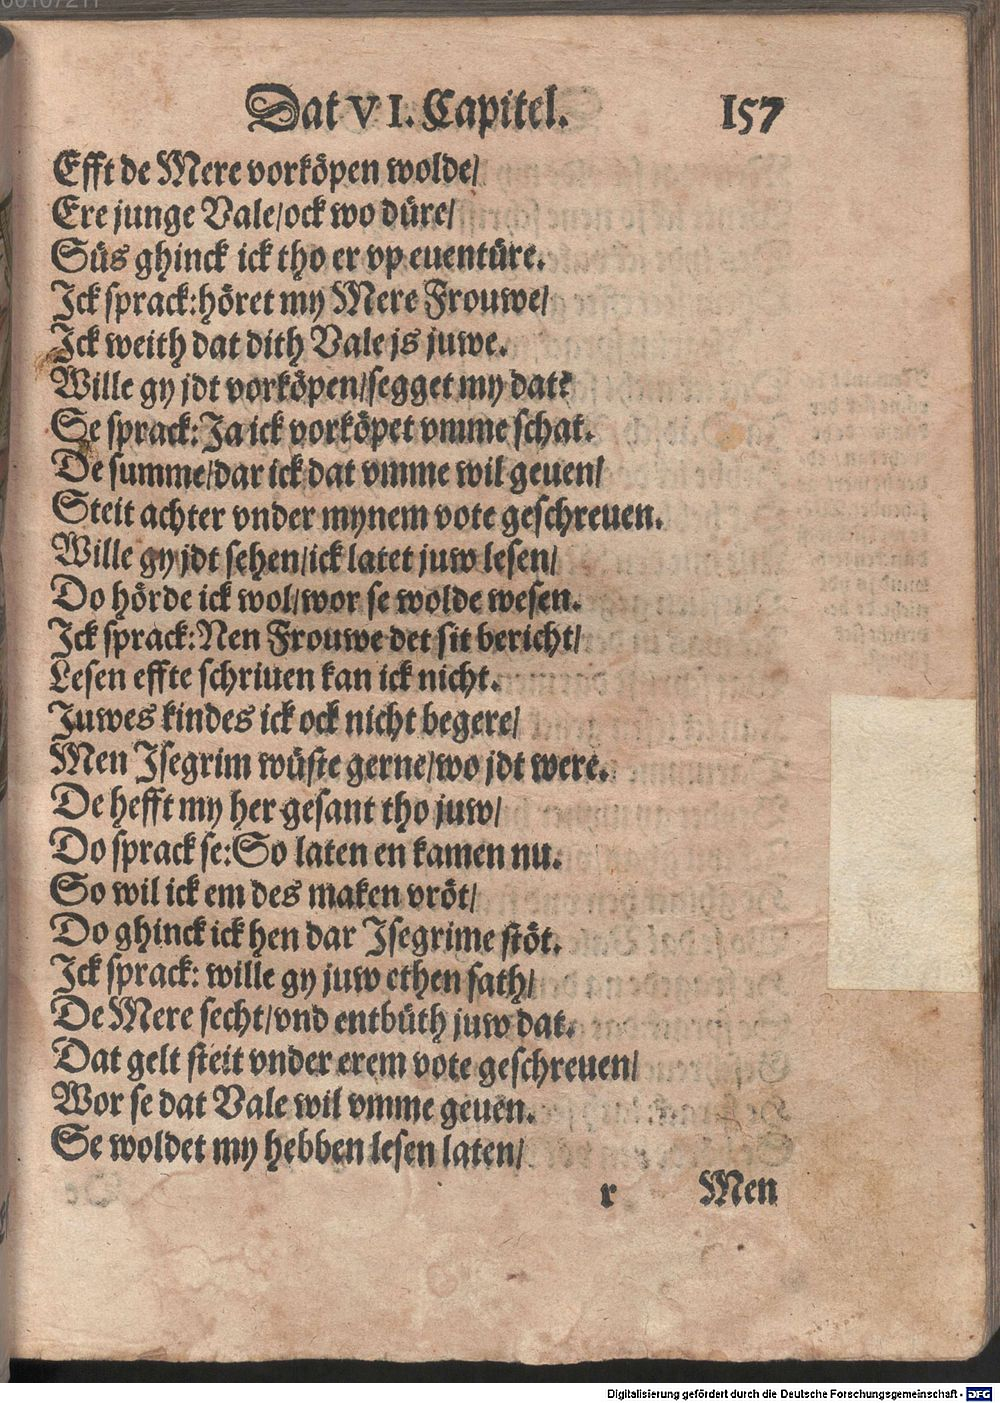 00107211
Dat VI. Capitel. 157
Efft de Mere vorköpen wolde/
Ere junge Vale/ock wo düre/
Süs ghinck ick tho er vp euentüre.
Ick sprack:höret my Mere Frouwe/
Ick weith dat dith Vale js juwe.
Wille gy jdt vorköpen/segget my dat?
Se sprack:Ja ick vorköpet vmme schat.
De summe/dar ick dat vmme wil geuen/
Steit achter vnder mynem vote geschreuen.
Wille gy jdt sehen/ick latet juw lesen/
Do hörde ick wol/wor se wolde wesen.
Ick sprack:Nen Frouwe det sit bericht/
Lesen effte schriuen kan ick nicht.
Juwes kindes ick ock nicht begere/
Men Isegrim wüste gerne/wo jdt were.
De hefft my her gesant tho juw/
Do sprack se:So laten en kamen nu.
So wil ick em des maken vröt/
Do ghinck ick hen dar Isegrime stöt.
Ick sprack: wille gy juw ethen sath/
De Mere secht/vnd entbüth juw dat.
Dat gelt steit vnder erem vote geschreuen/
Wor se dat Vale wil vmme geuen.
Se woldet my hebben lesen laten/
r Men
Digitalisierung gefördert durch die Deutsche Forschungsgemeinschaft - DFG